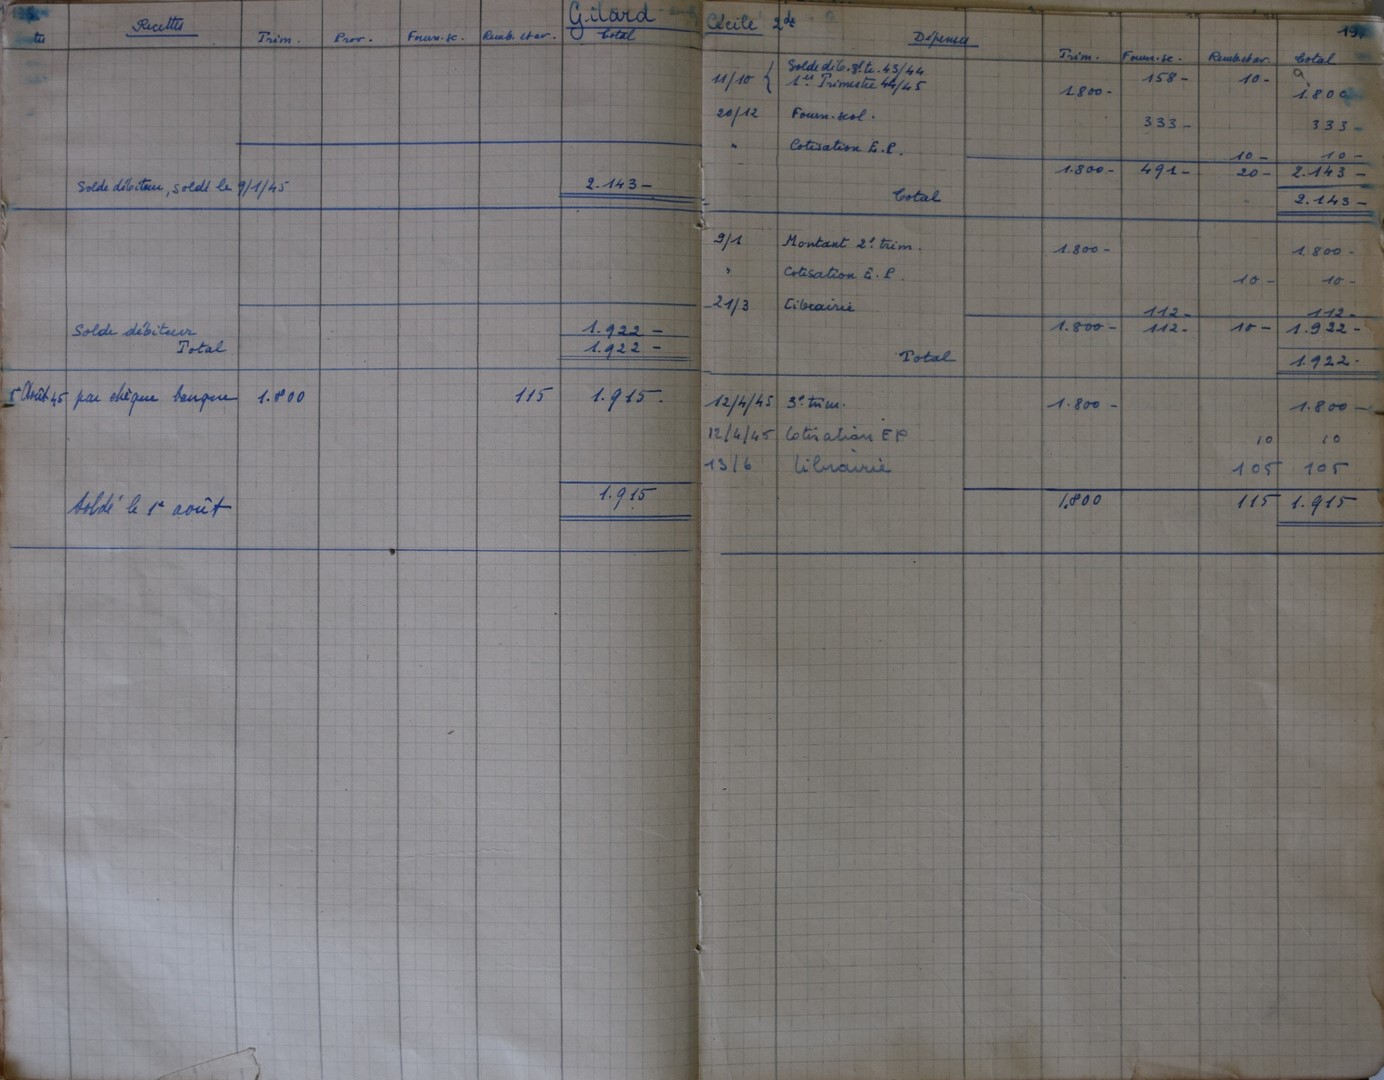 Gilard
Recettes
Trim. Prov. Fourn. sc. Remb. et av. Total
Solde débiteur, soldé le 9/1/45 2.143 -
Solde débiteur 1.922 -
Total 1.922 -
1er Août 45 par chèque banque 1.800 115 1.915.
Soldé le 1er août 1.915
Cécile 2de
Dépenses
Trim. Fourn. sc. Remb. et av. Total
11/10 { 158 - 10 -
1er Trimestre 44/45 1800 - 1.800
20/12 Fourn. scol. 333 - 333 -
" Cotisation E.P. 10 - 10 -
1.800 - 491 - 20 - 2.143 -
Total 2.143 -
9/1 Montant 2e trim. 1.800 - 1.800 -
" Cotisation E.P. 10 - 10 -
21/3 Librairie 112 - 112 -
1.800 - 112 - 10 - 1.922 -
Total 1.922 -
12/4/45 3e trim. 1.800 - 1.800 -
12/4/45 Cotisation EP 10 10
13/6 Librairie 105 105
1.800 115 1.915